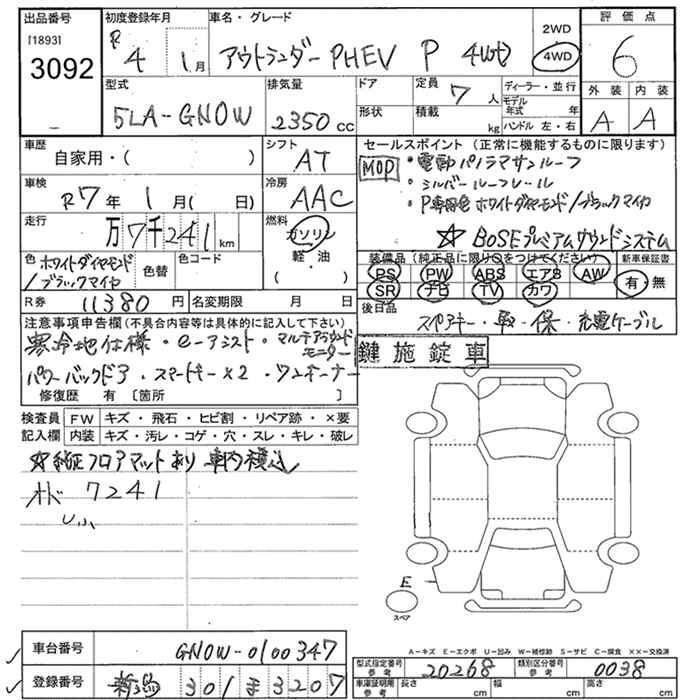 出品番号 初度登録年月 車名・グレード 2WD 評価点
[1893] R4 1月 アウトランダーPHEV P 4WD 4WD 6
3092 外装 内装
型式 排気量 ドア 定員 7人 ディーラー・並行 A A
5LA-GN0W 2350cc 形状 積載 kg モデル年式 年
ハンドル 左・右
車歴 シフト セールスポイント(正常に機能するものに限ります)
自家用・( ) AT MOP ・電動パノラマサンルーフ
車検 冷房 ・シルバールーフレール
R7年 1月( 日) AAC ・P専用色ホワイトダイヤモンド/ブラックマイカ
走行 燃料 ☆BOSEプレミアムサウンドシステム
万7千241km ガソリン
色 ホワイトダイヤモンド/ブラックマイカ 色替 色コード 軽・油 ( )
装備品(純正品に限り○をつけてください) 新車保証書
PS PW ABS エアB AW 有・無
SR ナビ TV カワ
R券 11380円 名変期限 月 日
後日品
スペアキー・取・保・充電ケーブル
注意事項申告欄(不具合内容等は具体的に記入して下さい)
寒冷地仕様・e-アシスト・マルチアラウンドモニター
鍵施錠車
パワーバックドア・スマートキー×2・ワンオーナー
修復歴 有 〔箇所 〕
検査員 FW キズ・飛石・ヒビ割・リペア跡・×要
記入欄 内装 キズ・汚レ・コゲ・穴・スレ・キレ・破レ
☆純正フロアマットあり 車内積込
オド 7241
E
スペア
A-キズ E-エクボ U-凹み W-補修跡 S-サビ C-腐食 ××-交換済
車台番号 GN0W-0100347
型式指定番号 参考 20268 類別区分番号 参考 0038
登録番号 新潟 301 ま 3207
車庫証明用 参考 長さ cm 幅 cm 高さ cm